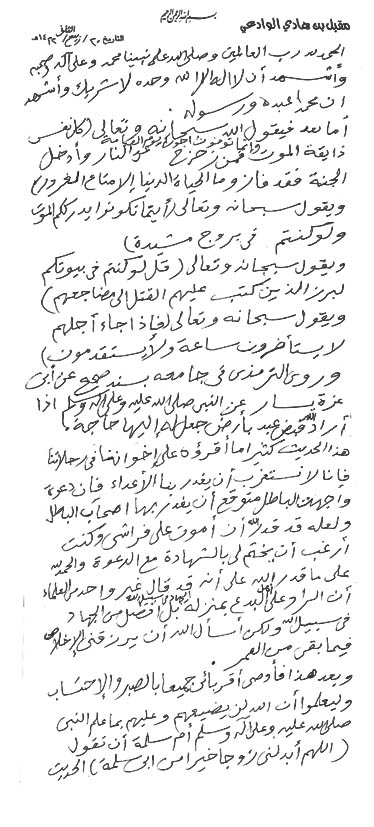 بسم الله الرحمن الرحيم
مقبل بن هادي الوادعي
التاريخ ٢٠ / ربيع الثاني / ١٤٢٢هـ
الحمد لله رب العالمين وصلى الله على نبينا محمد وعلى آله وصحبه
وأشهد أن لا إله إلا الله وحده لا شريك وأشهد
أن محمدا عبده ورسوله
أما بعد فيقول الله سبحانه وتعالى (كل نفس
ذايقة الموت وإنما توفون أجوركم يوم القيامة فمن زحزح عن النار وأدخل
الجنة فقد فاز وما الحياة الدنيا إلا متاع الغرور)
ويقول سبحانه وتعالى (أينما تكونوا يدرككم الموت
ولو كنتم في بروج مشيدة)
ويقول سبحانه وتعالى (قل لو كنتم في بيوتكم
لبرز الذين كتب عليهم القتل إلى مضاجعهم)
ويقول سبحانه وتعالى (فإذا جاء أجلهم
لا يستأخرون ساعة ولا يستقدمون)
وروى الترمذي في جامعه بسند صحيح عن أبي
عزة يسار عن النبي صلى الله عليه وعلى آله وسلم إذا
أراد الله قبض عبد بأرض جعل له إليها حاجة
هذا الحديث كثيرا ما أقرؤه على إخواننا في رحلاتنا
فإنا لا نستغرب أن يغدر بنا الأعداء فإن دعوة
واجهت الباطل متوقع أن يغدر بها أصحاب الباطل
ولعله قد قدر الله أن أموت على فراشي وكنت
أرغب أن يختم لي بالشهادة مع الدعوة والحمد لله
على ما قدر الله على أنه قد قال غير واحد من العلماء
أن الرد على أهل البدع بمنزلة الجهاد في سبيل الله بل أفضل من الجهاد
في سبيل الله ولكن أسأل الله أن يرزقني الإخلاص
فيما بقي من العمر
وبعد هذا فأوصي أقربائي جميعا بالصبر والإحتساب
وليعلموا أن الله لن يضيعهم وعليهم بما علم النبي
صلى الله عليه وعلى آله وسلم أم سلمة أن تقول
(اللهم أبدلني زوجا خيرا من أبي سلمة) الحديث